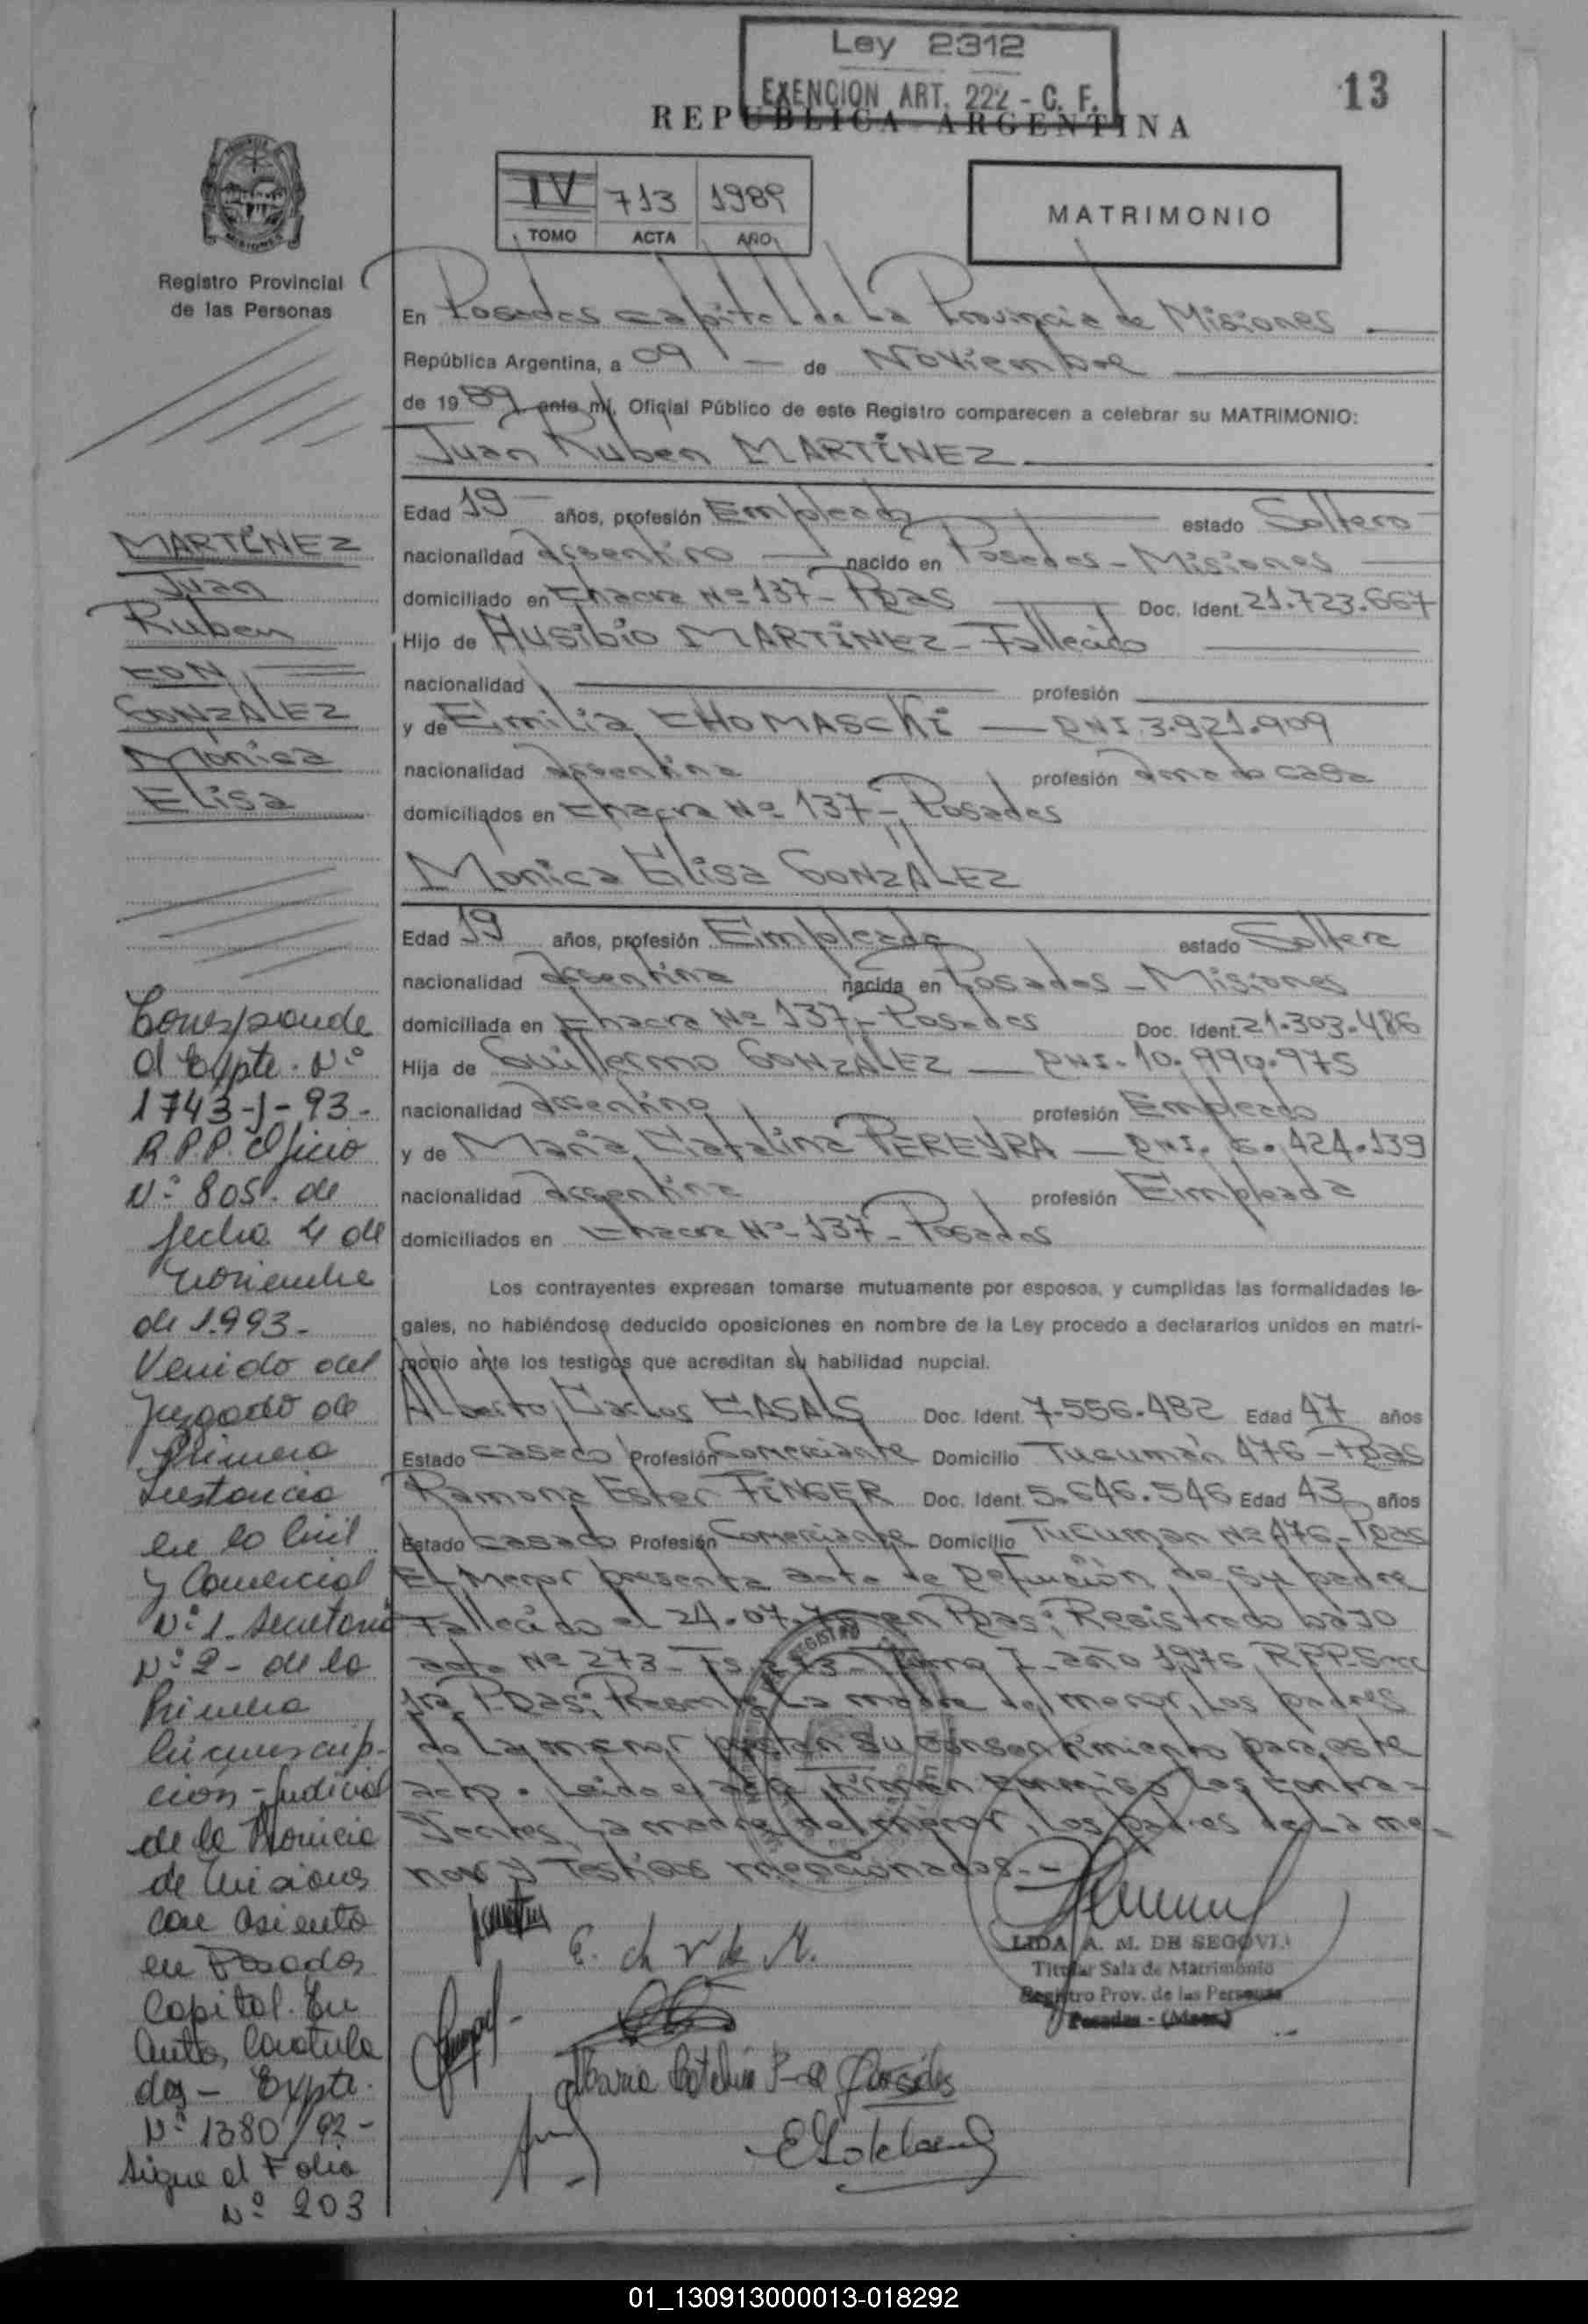 Ley 2312
EXENCION ART. 222 - C. F.
13
REPUBLICA ARGENTINA
IV 713 1989
TOMO ACTA AÑO
MATRIMONIO
MISIONES
Registro Provincial
de las Personas
En Posadas capital de La Provincia de Misiones
República Argentina, a 09 de Noviembre
de 1989 ante mí, Oficial Público de este Registro comparecen a celebrar su MATRIMONIO:
Juan Ruben MARTINEZ
Edad 19 años, profesión Empleado estado Soltero
nacionalidad Argentino nacido en Posadas - Misiones
domiciliado en Chacra Nº 137 - Pdas Doc. Ident. 21.723.667
Hijo de Ausibio MARTINEZ - Fallecido
nacionalidad profesión
y de Emilia CHOMASCKI — DNI. 3.921.909
nacionalidad Argentina profesión ama de casa
domiciliados en Chacra Nº 137 - Posadas
Monica Elisa GONZALEZ
Edad 19 años, profesión Empleada estado Soltera
nacionalidad Argentina nacida en Posadas - Misiones
domiciliada en Chacra Nº 137 - Posadas Doc. Ident. 21.303.486
Hija de Guillermo GONZALEZ — DNI. 10.990.975
nacionalidad Argentino profesión Empleado
y de Maria Catalina PEREYRA — DNI. 6.424.139
nacionalidad Argentina profesión Empleada
domiciliados en Chacra Nº 137 - Posadas
Los contrayentes expresan tomarse mutuamente por esposos, y cumplidas las formalidades le-
gales, no habiéndose deducido oposiciones en nombre de la Ley procedo a declararlos unidos en matri-
monio ante los testigos que acreditan su habilidad nupcial.
Alberto Carlos CASALS Doc. Ident. 7.556.482 Edad 47 años
Estado Casado Profesión Comerciante Domicilio Tucumán 476 - Pdas
Ramona Ester FINGER Doc. Ident. 5.646.546 Edad 43 años
Estado Casado Profesión Comerciante Domicilio Tucuman Nº 476 - Pdas
El Menor presenta acta de Defunción de su padre
Fallecido el 24.07.76 en Pdas; Registrado bajo
acta Nº 273 - Tomo I - año 1976 RPP Secc
1ra Pdas; Presente La madre del menor, Los padres
de La menor prestan su consentimiento para este
acto. Leida el acta firman conmigo Los contra-
yentes, La madre del menor, Los padres de La me-
nor y Testigos mencionados.-
E. ch v de M.
LIDA A. M. DE SEGOVIA
Titular Sala de Matrimonio
Registro Prov. de las Personas
Posadas - (Mnes.)
Maria Catalina P. de
MARTINEZ
Juan
Ruben
CON
GONZALEZ
Monica
Elisa
Corresponde
al Expte. Nº
1743-J-93-
R.P.P. Oficio
Nº 805. de
fecha 4 de
noviembre
de 1.993-
Venido del
Juzgado de
Primera
Instancia
en lo Civil
y Comercial
Nº 1. Secretaria
Nº 2 - de la
Primera
Circunscrip-
ción - Judicial
de la Provincia
de Misiones
con asiento
en Posadas
Capital. En
Autos Caratula
dos - Expte.
Nº 1380/92-
Sigue al Folio
Nº 203
01_130913000013-018292